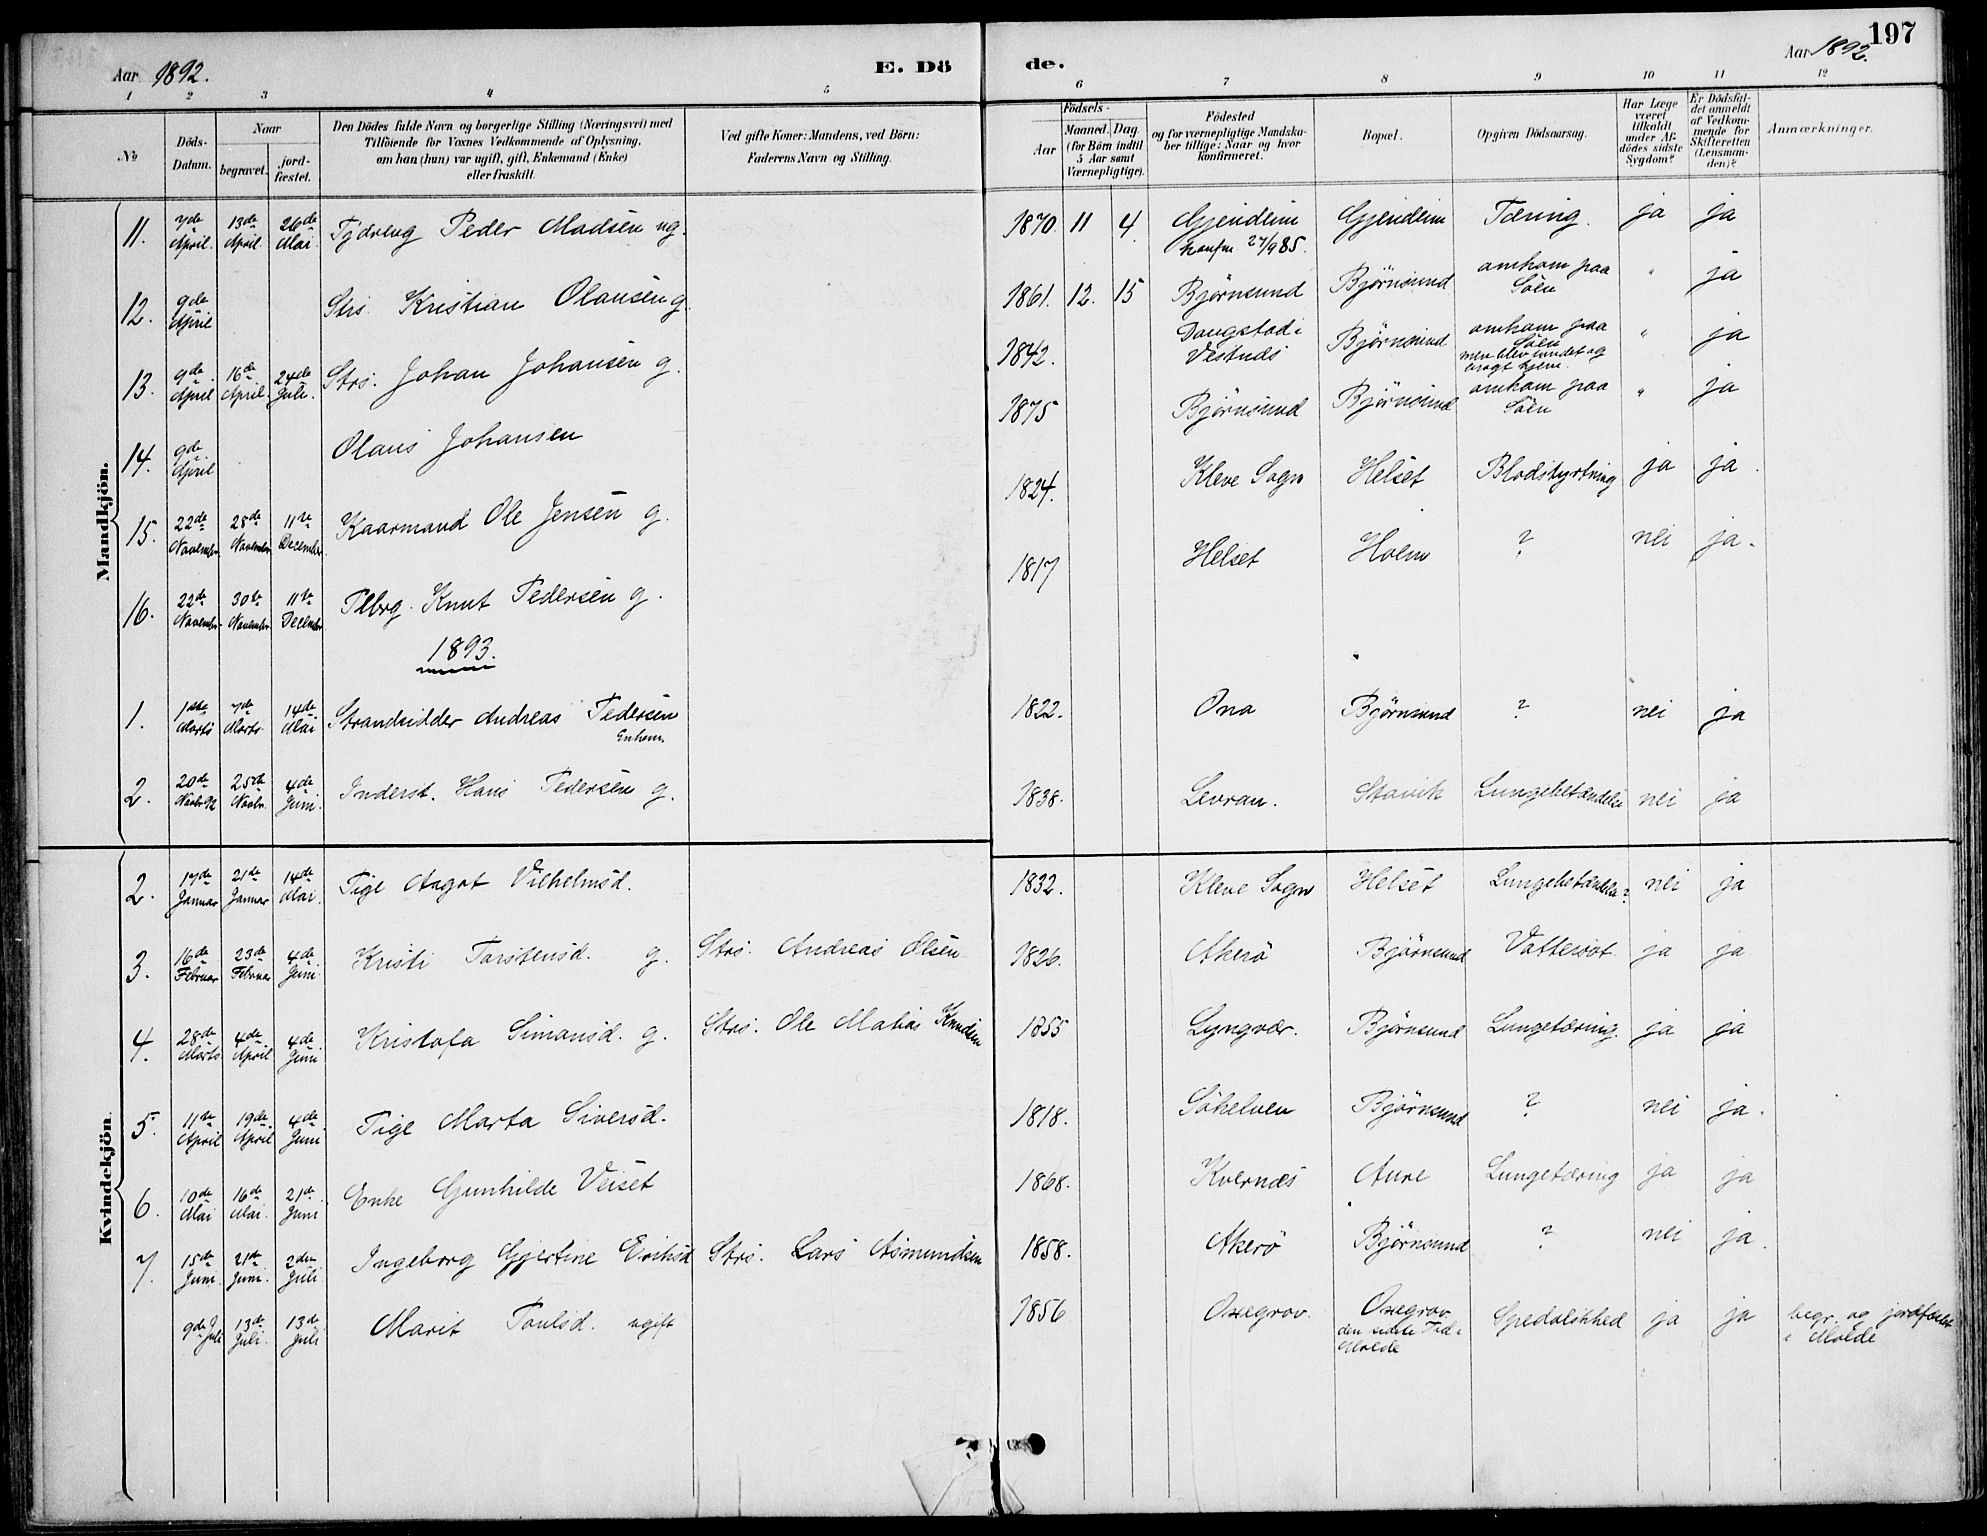 197
Aar 1892.
E. Dö de.
Aar 1892.
1 2 3 4 5 6 7 8 9 10 11 12
No
Döds-Datum.
Naar
begravet.
jord-fæstet.
Den Dödes fulde Navn og borgerlige Stilling (Næringsvei) med
Tilföiende for Voxnes Vedkommende af Oplysning,
om han (hun) var ugift, gift, Enkemand (Enke)
eller fraskilt.
Ved gifte Koner: Mandens, ved Börn:
Faderens Navn og Stilling.
Födsels-
Aar
Maaned. Dag.
(for Börn indtil
5 Aar samt
Værnepligtige).
Födested
og for værnepligtige Mandska-
ber tillige: Naar og hvor
konfirmeret.
Bopæl.
Opgiven Dödsaarsag.
Har Læge
været
tilkaldt
under Af-
dödes sidste
Sygdom?
Er Dödsfal-
det anmeldt
af Vedkom-
mende for
Skifteretten
(Lensman-
den)?
Anmærkninger.
Mandkjön.
11. 7de April. 13de April. 26de Mai. Tjdreng Peder Madsen ug. 1870 11 4 Gjendem konfm 27/9 85. Gjendem Tæring. ja ja
12. 9de April Strs. Kristian Olausen g. 1861. 12. 15 Bjørnsund Bjørnsund omkom paa Söen " ja
13. 9de April 16de April. 24de Juli. Strs. Johan Johansen g. 1842. Daugstad i Vestnæs Bjørnsund omkom paa Söen men blev fundet og bragt hjem. " ja
14. 9de April Olaus Johansen 1875 Bjørnsund Bjørnsund omkom paa Söen " ja
15. 22de November 28de November 11te December Kaarmand Ole Jensen g. 1824. Kleve Sogn Helset Blodstyrtning ja ja
16. 22de November 30te November 11te December Plbrg. Knut Pedersen g. 1817 Helset Holm ? nei ja.
1893.
1. 1ste Marts 7de Marts 14de Mai Strandsidder Andreas Pedersen Enkem. 1822. Ona Bjørnsund ? nei ja
2. 20de Novbr 92 25de Novbr. 4de Juni Inderst. Hans Pedersen g. 1838. Levran. Stavik Lungebetændelse nei ja
Kvindekjön
2. 17de Januar 21de Januar 14de Mai. Pige Aagot Vilhelmsd. 1832. Kleve Sogn Helset Lungebetændelse? nei ja
3. 16de Februar 23de Februar 4de Juni Kristi Torstensd. g. Strs. Andreas Olsen 1826. Akerö Bjørnsund Vattersot ja ja
4. 28de Marts 4de April 4de Juni Kristofa Simonsd. g. Strs. Ole Matias Knudsen 1855 Lyngvær. Bjørnsund Lungetæring. ja ja
5. 11te April 19de April 4de Juni Pige Marta Siversd. 1818. Sökelven Bjørnsund ? nei ja.
6. 10de Mai 16de Mai. 21de Juni Enke Gunhilde Veiset 1868. Kvernæs Aure Lungetæring ja ja
7. 15de Juni. 21de Juni. 2den Juli Ingeborg Gjertine Eriksd Strs. Lars Asmundsen 1858. Akerö Bjørnsund ? nei ja.
9de Juli 13de Juli. 13de Juli Marit Poulsd. ugift 1856 Oxegrov. Oxegrov den sidste Tid i Molde Spedalskhed ja ja begr. og jordfæstet i Molde